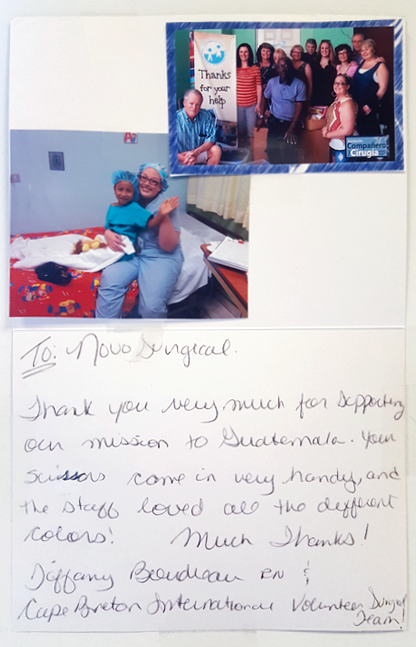 Thanks
for your
help
Compañero
Cirugia
To: Novo Surgical.
Thank you very much for supporting
our mission to Guatemala. Your
scissors came in very handy, and
the staff loved all the different
colors! Much Thanks!
Tiffany Boudreau RN &
Cape Breton International Volunteer Surgical
Team!